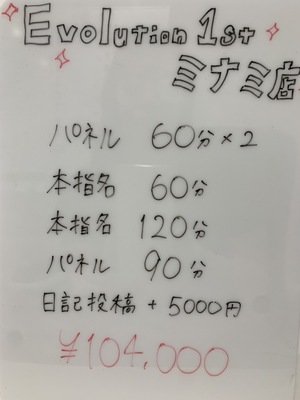 Evolution 1st
ミナミ店
パネル 60分×2
本指名 60分
本指名 120分
パネル 90分
日記投稿 + 5000円
¥104,000